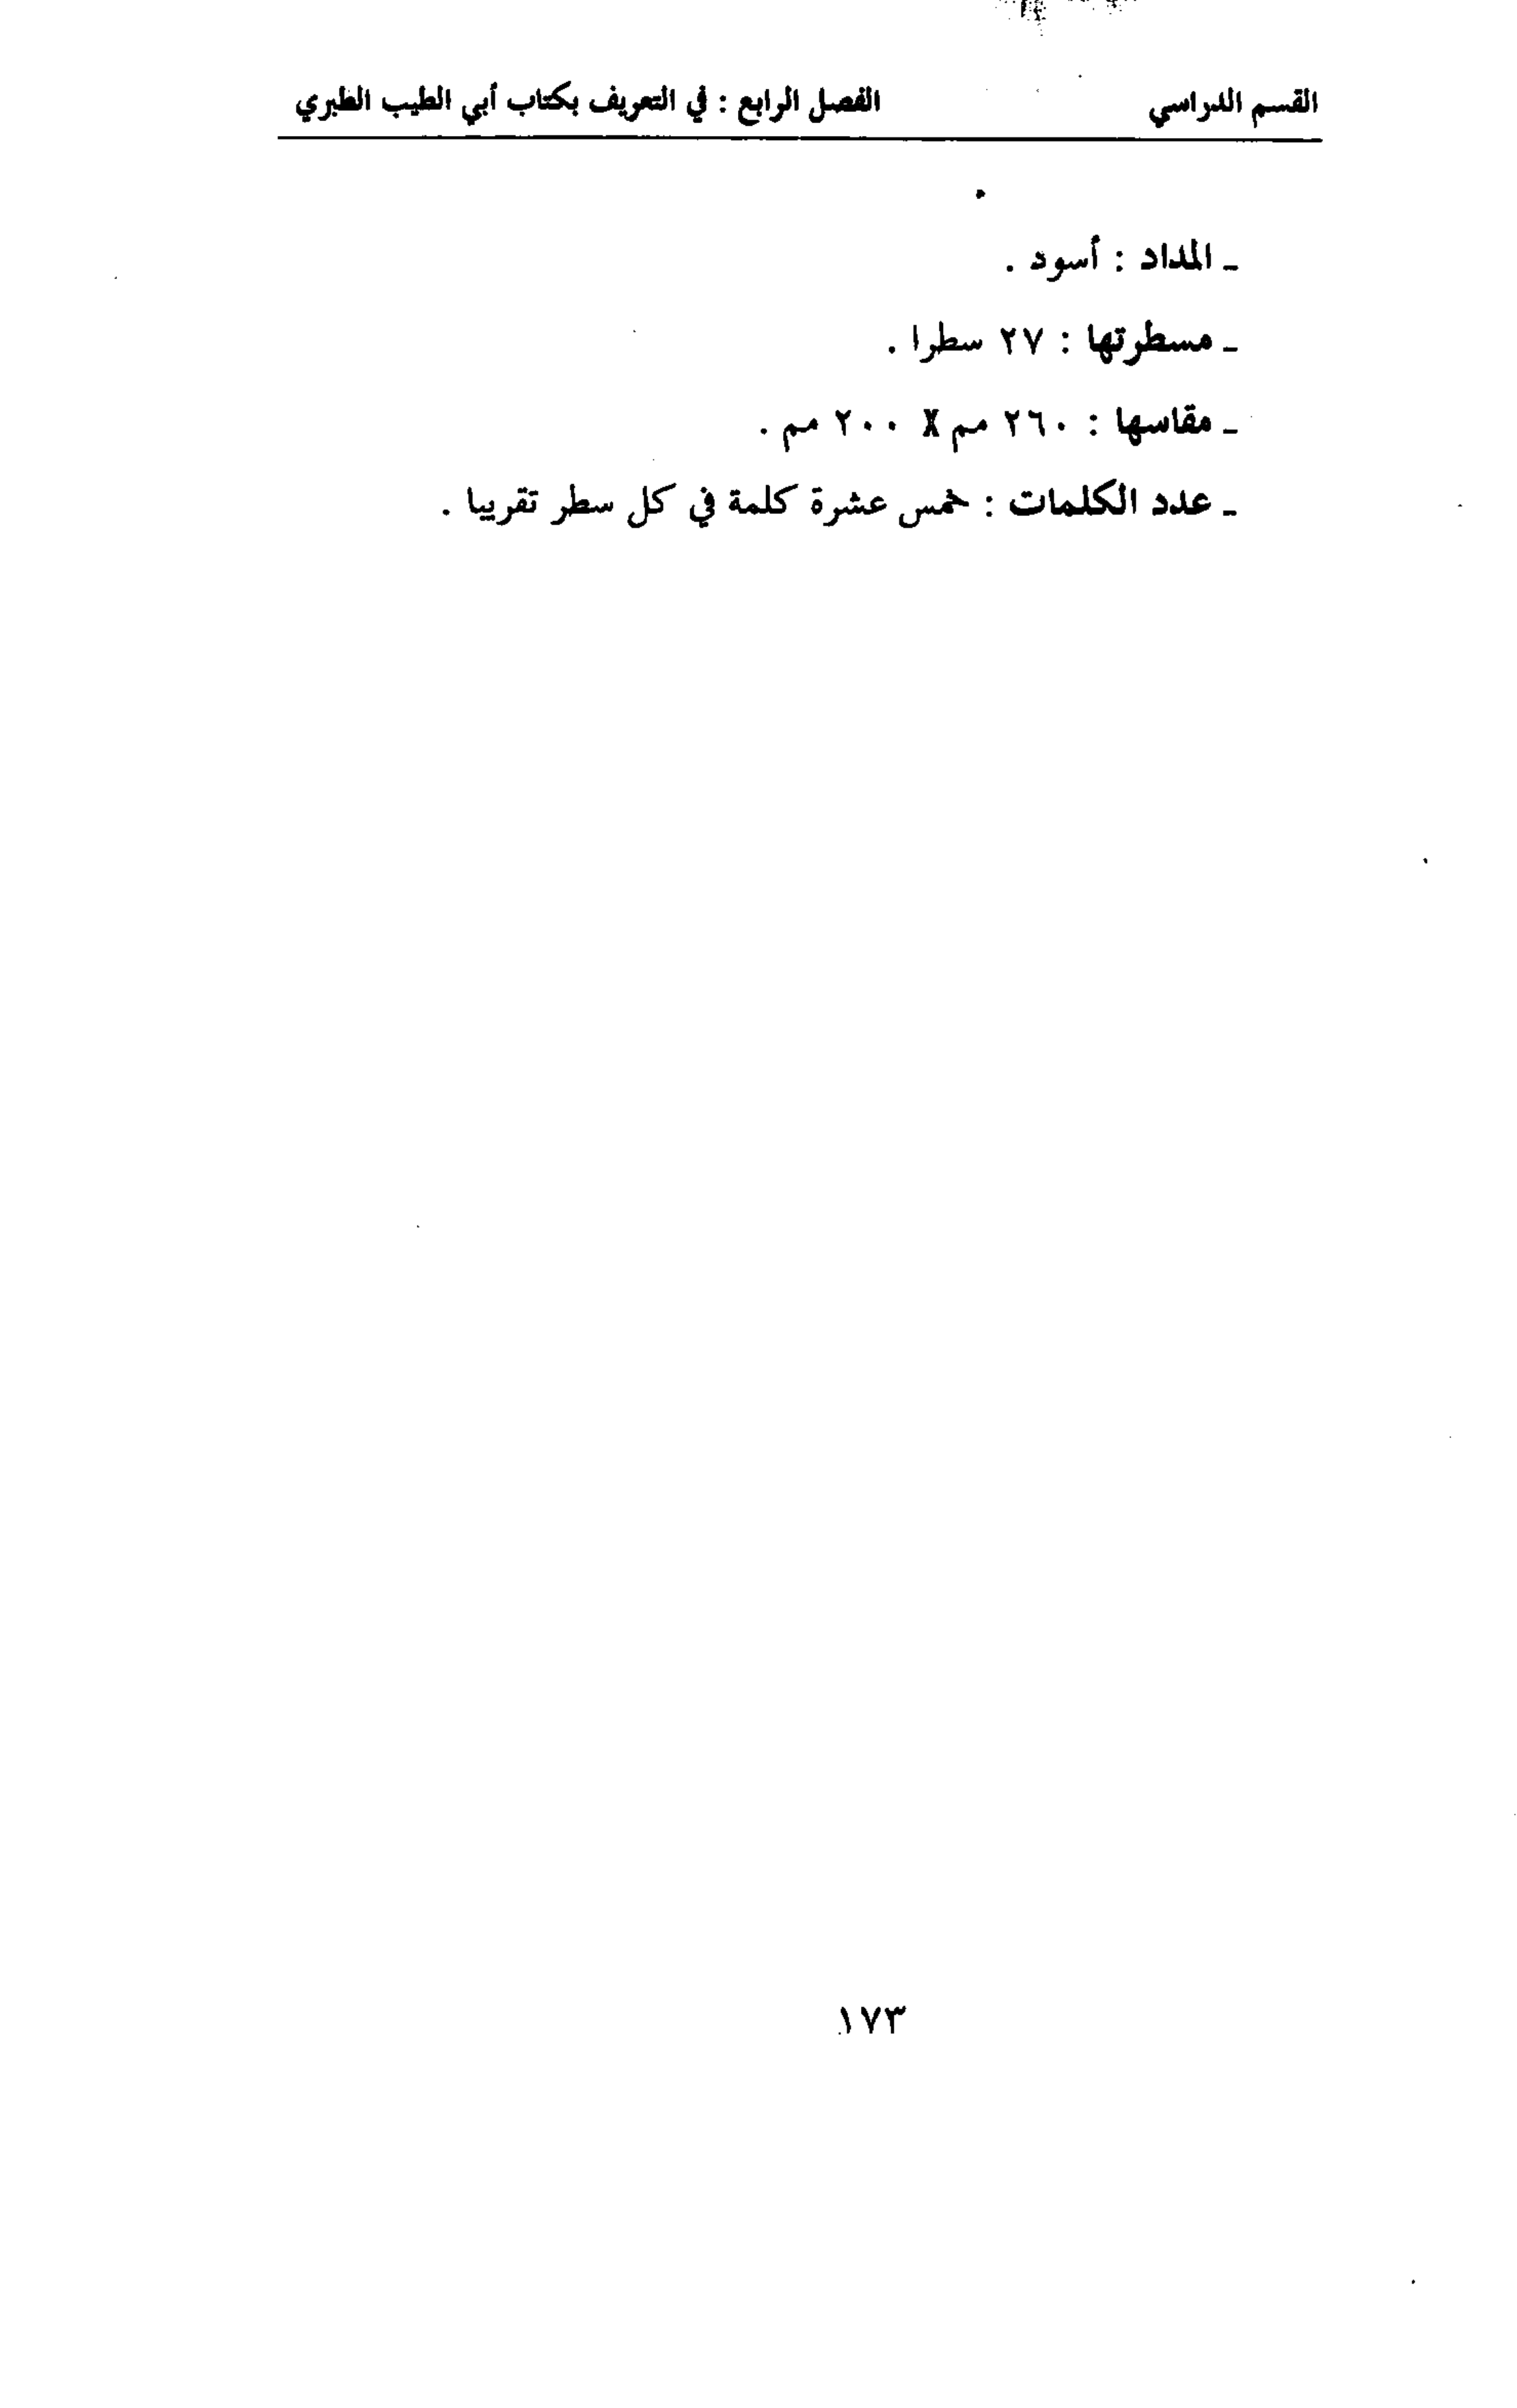 القسم الدراسي الفصل الرابع : في التعريف بكتاب أبي الطيب الطبري
ـ المداد : أسود .
ـ مسطرتها : ٢٧ سطرا .
ـ مقاسها : ٢٦٠ مم X ٢٠٠ مم .
ـ عدد الكلمات : خمس عشرة كلمة في كل سطر تقريبا .
١٧٣